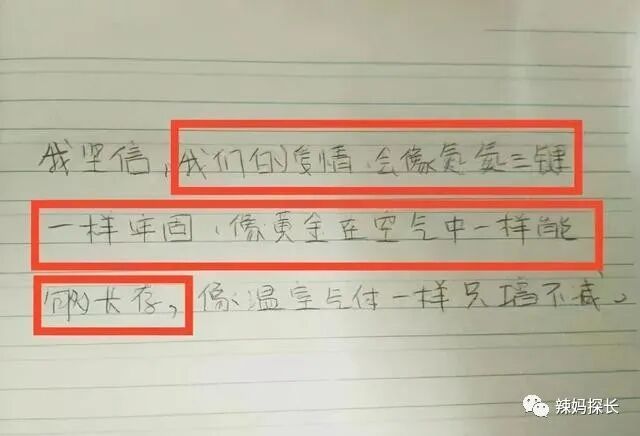 我坚信，我们的爱情会像氮氮三键
一样牢固、像黄金在空气中一样能
够长存，像温室气体一样只增不减。
辣妈探长